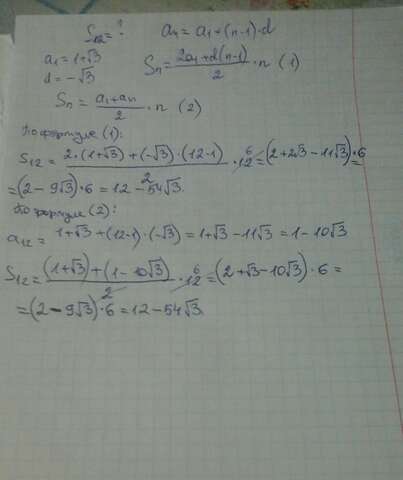 S₁₂=? a_n = a₁+(n-1)·d
a₁ = 1+√3
d = -√3
S_n = (2a₁+d(n-1))/2 · n (1)
S_n = (a₁+a_n)/2 · n (2)
По формуле (1):
S₁₂ = (2·(1+√3)+(-√3)·(12-1))/2 · 12 6 = (2+2√3-11√3)·6 =
= (2-9√3)·6 = 12-54√3.
По формуле (2):
a₁₂ = 1+√3+(12-1)·(-√3) = 1+√3-11√3 = 1-10√3
S₁₂ = ((1+√3)+(1-10√3))/2 · 12 6 = (2+√3-10√3)·6 =
= (2-9√3)·6 = 12-54√3.